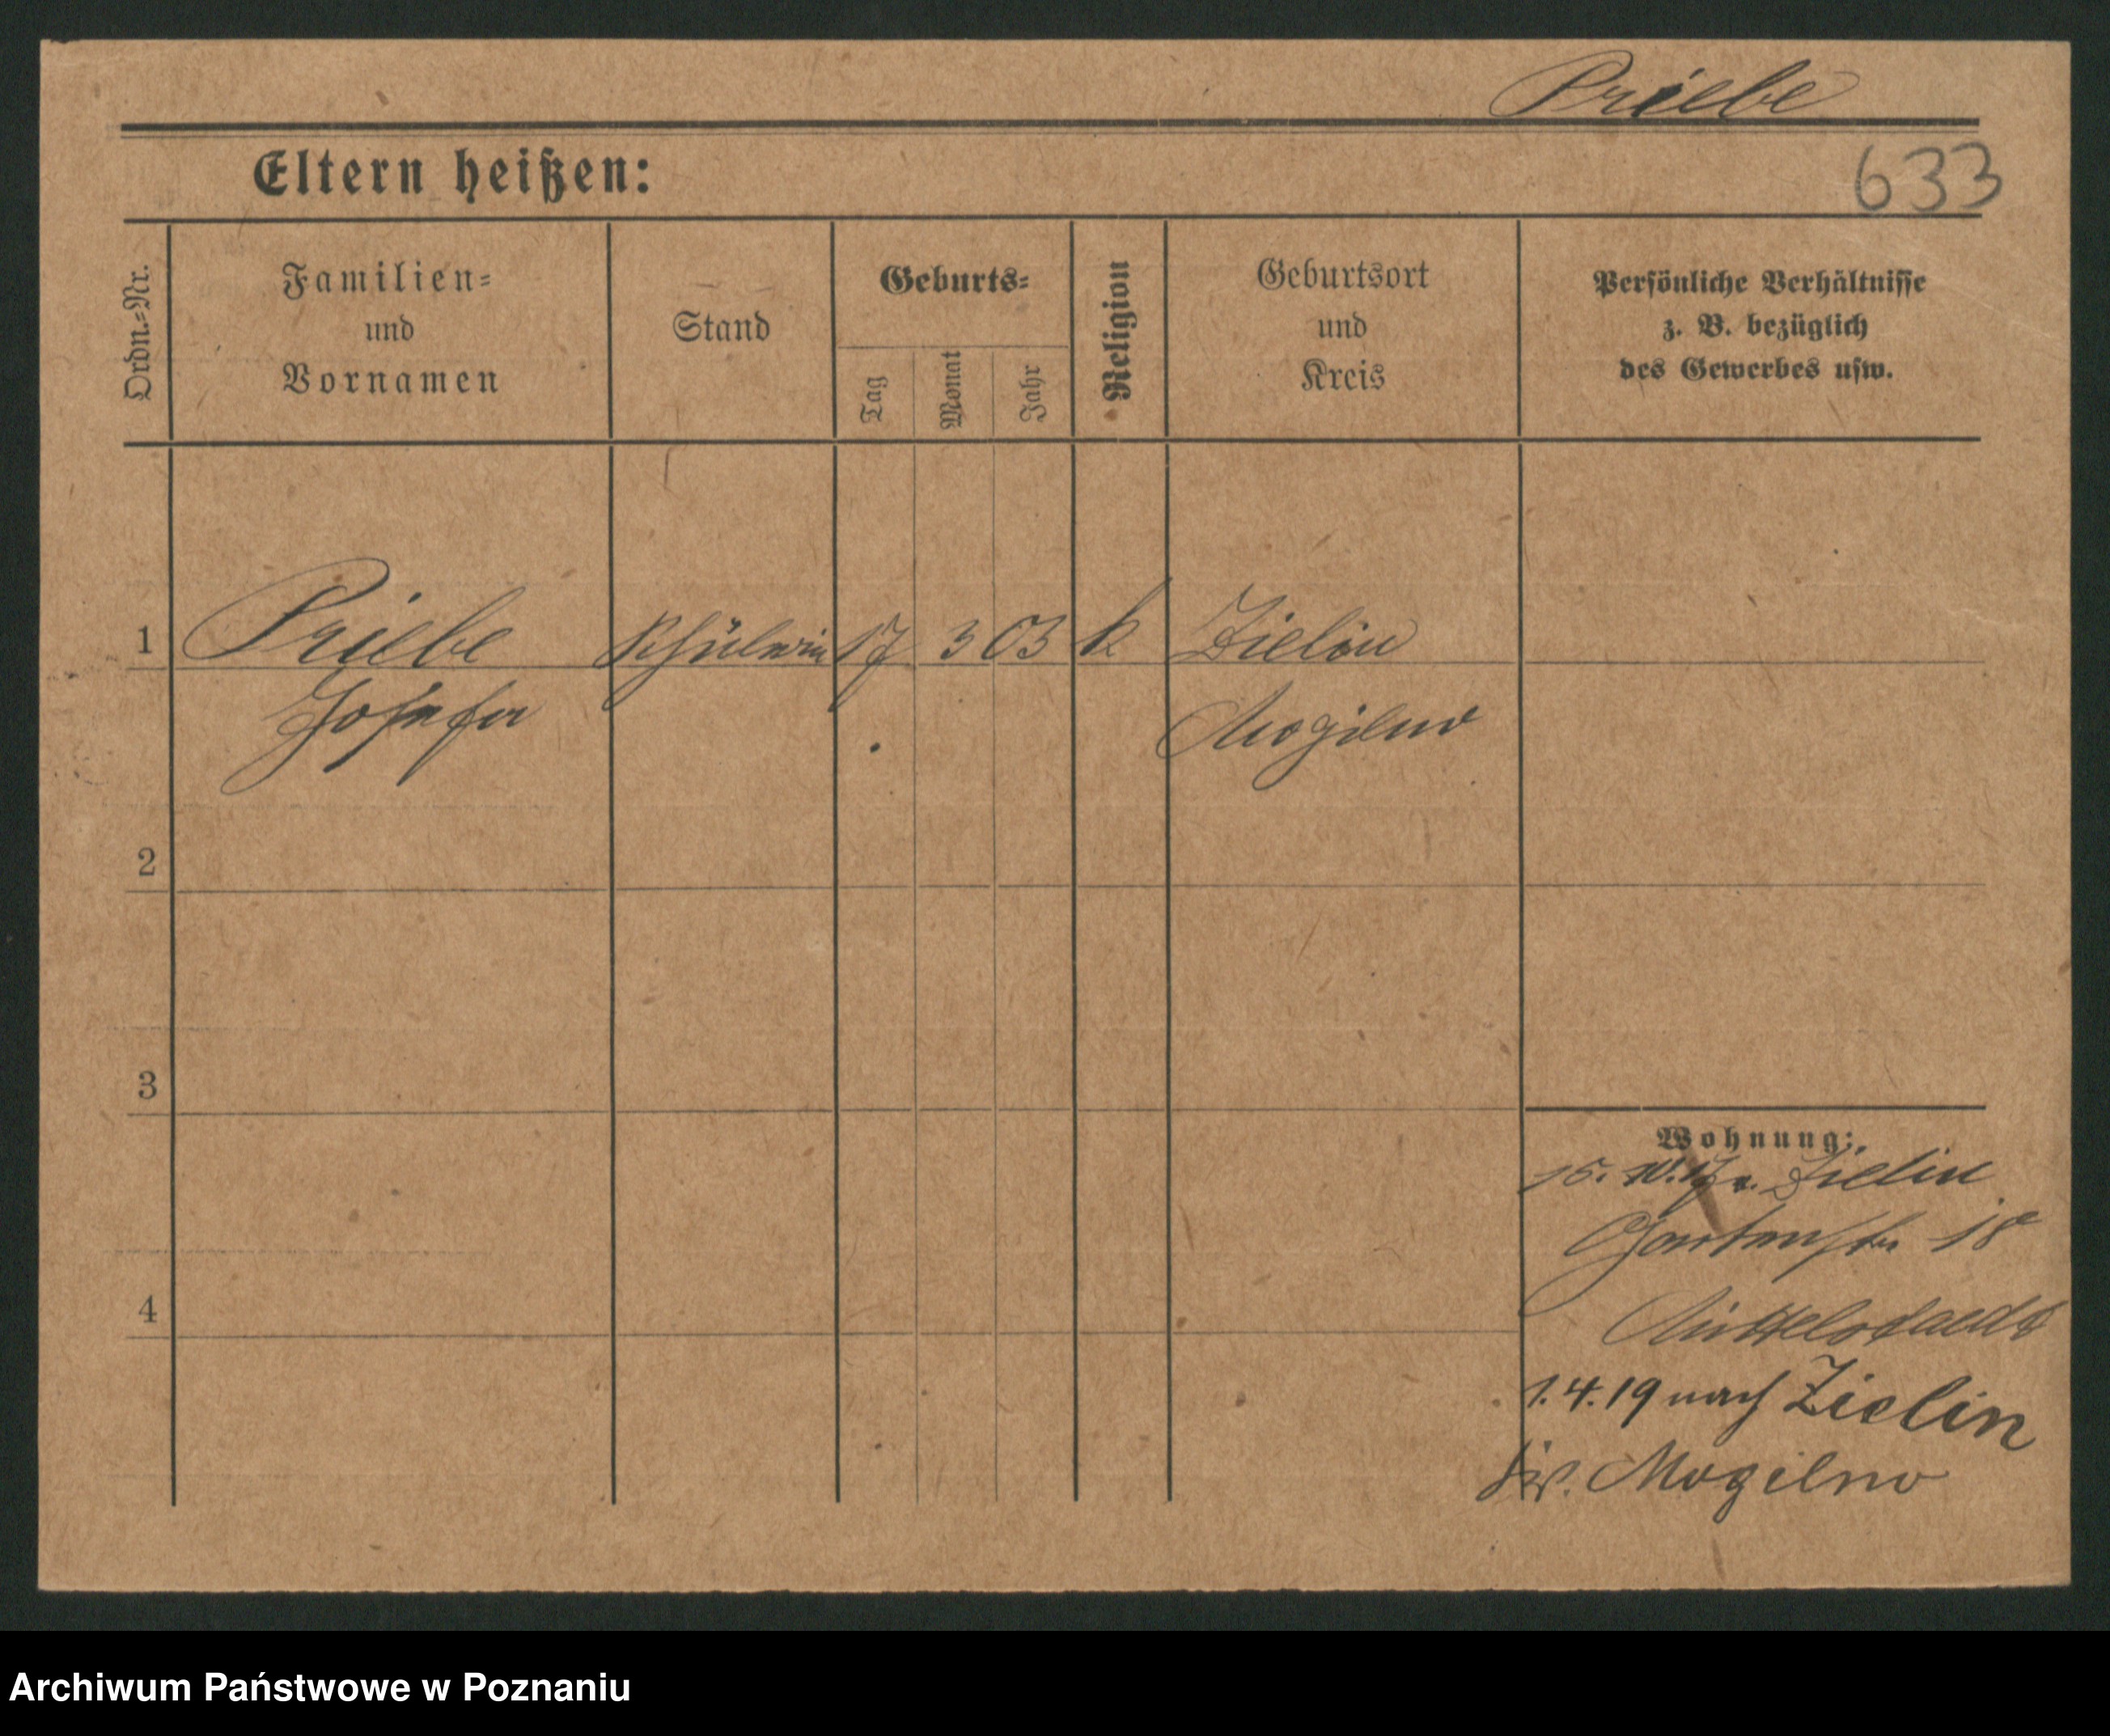 Priebe
Eltern heißen:
633
Ordn.=Nr.
Familien=
und
Vornamen
Stand
Geburts=
Tag
Monat
Jahr
Religion
Geburtsort
und
Kreis
Persönliche Verhältnisse
z. B. bezüglich
des Gewerbes usw.
1 Priebe Schülerin 17 3 03 k Zielin
Josefa Mogilno
2
3
4
Wohnung:
15. 10. 17 v. Zielin
Gartenstr 18
1.4.19 nach Zielin
Kr. Mogilno
Archiwum Państwowe w Poznaniu